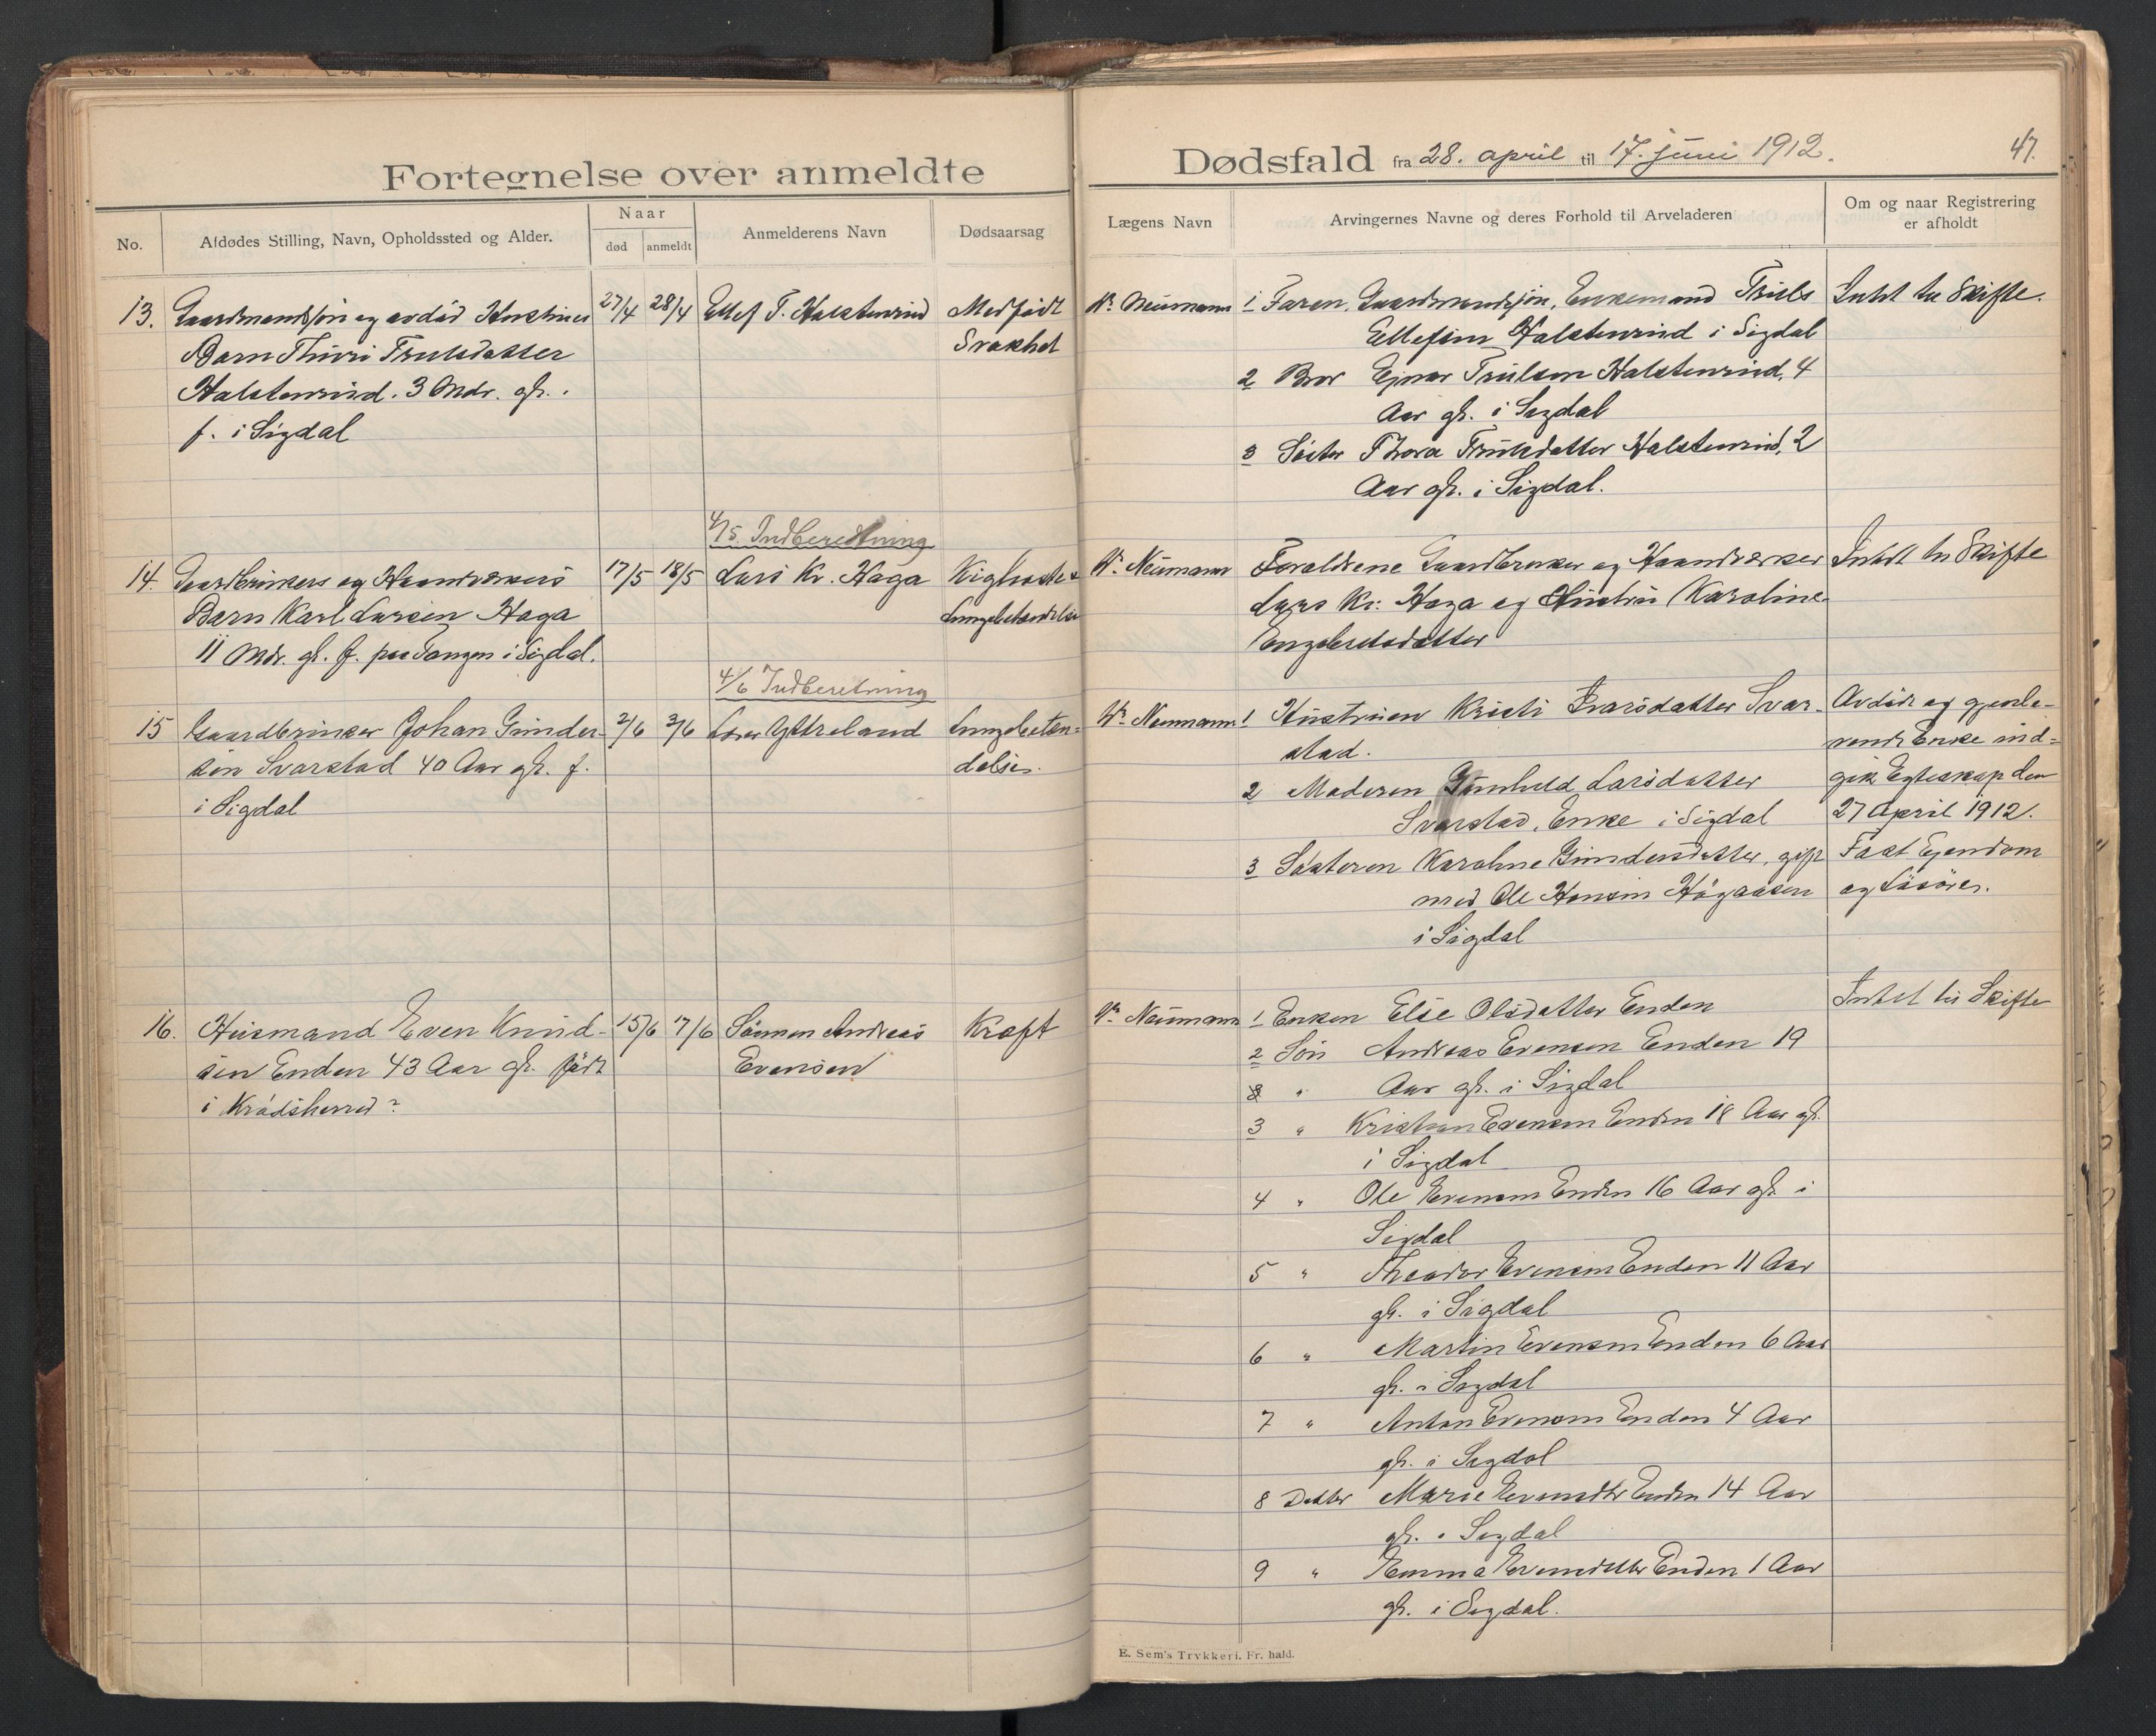 Fortegnelse over anmeldte
No.
Afdødes Stilling, Navn, Opholdssted og Alder.
Naar
død
anmeldt
Anmelderens Navn
Dødsaarsag
13. Gaardmandssøn og avdød Hustrues
Barn Thuri Trulsdatter
Halstenrud. 3 Mdr. gl.
f. i Sigdal
27/4 28/4
Ellef T. Halstenrud
Medfødt
Svakhet
4/5. Indberetning
14. Gaardbrukers og Haandværkers
Barn Karl Larsen Haga
11 Mdr. gl. f. paa Tangen i Sigdal.
17/5 18/5
Lars Kr. Haga
Kighoste &
Lungebetændelse
4/6 Indberetning
15 Gaardbruker Johan Gunder-
sen Svarstad 40 Aar gl. f.
i Sigdal
2/6 3/6
Lærer Yttreland
Lungebetæn-
delse.
16. Husmand Even Knud-
sen Enden 43 Aar gl. født
i Krødsherred?
15/6 17/6
Sønnen Andreas
Evensen
Kræft
Dødsfald fra 28. april til 17. juni 1912.
47.
Lægens Navn
Arvingernes Navne og deres Forhold til Arveladeren
Om og naar Registrering
er afholdt
Dr. Neumann
1 Faren, Gaardmandssøn, Enkemand Truls
Ellefsen Halstenrud i Sigdal
2 Bror Ejnar Trulsen Halstenrud, 4
Aar gl. i Sigdal
3 Søster Thora Trulsdatter Halstenrud, 2
Aar gl. i Sigdal.
Intet til Skifte.
Dr. Neumann
Forældrene Gaardbruker og Haandværker
Lars Kr. Haga og Hustru Karoline
Engebretsdatter
Intet til Skifte
Dr. Neumann
1 Hustruen Kristi Ivarsdatter Svar-
stad.
2 Moderen Gunhild Larsdatter
Svarstad, Enke i Sigdal
3 Søsteren Karoline Gundersdatter, gift
med Ole Hansen Høgaasen
i Sigdal
Avdøde og gjenle-
vende Enke ind-
gik Egteskap den
27 April 1912.
Fast Ejendom
og Løsøre.
Dr. Neumann
1 Enken Else Olsdatter Enden
2 Søn Andreas Evensen Enden 19
3 " Aar gl. i Sigdal
3 " Kristian Evensen Enden 18 Aar gl.
i Sigdal
4 " Ole Evensen Enden 16 Aar gl. i
Sigdal
5 " Theodor Evensen Enden 11 Aar
gl. i Sigdal
6 " Martin Evensen Enden 6 Aar
gl. i Sigdal
7 " Anton Evensen Enden 4 Aar
gl. i Sigdal
8 Datter Marie Evensdtr Enden 14 Aar
gl. i Sigdal
9 " Emma Evensdatter Enden 1 Aar
gl. i Sigdal.
Intet til Skifte
E. Sem's Trykkeri. Fr. hald.